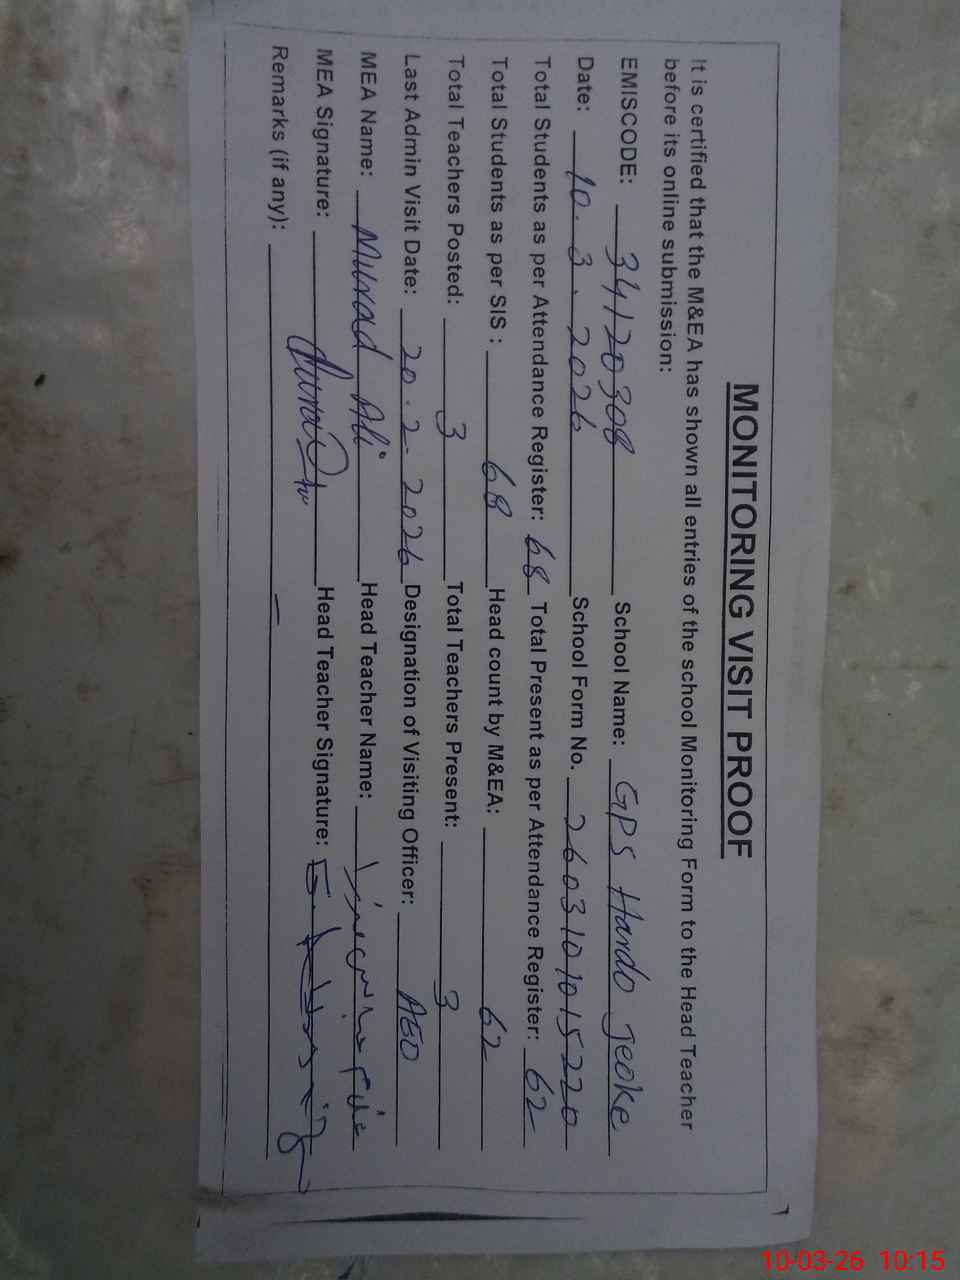 MONITORING VISIT PROOF
It is certified that the M&EA has shown all entries of the school Monitoring Form to the Head Teacher
before its online submission:
EMISCODE: 34120308 School Name: GPS Hardo Jeoke
Date: 10.3.2026 School Form No. 2603101015220
Total Students as per Attendance Register: 68 Total Present as per Attendance Register: 62
Total Students as per SIS : 68 Head count by M&EA: 62
Total Teachers Posted: 3 Total Teachers Present: 3
Last Admin Visit Date: 20.2-2026 Designation of Visiting Officer: AEO
MEA Name: Murad Ali Head Teacher Name:
MEA Signature: Head Teacher Signature:
Remarks (if any): —
10-03-26 10:15